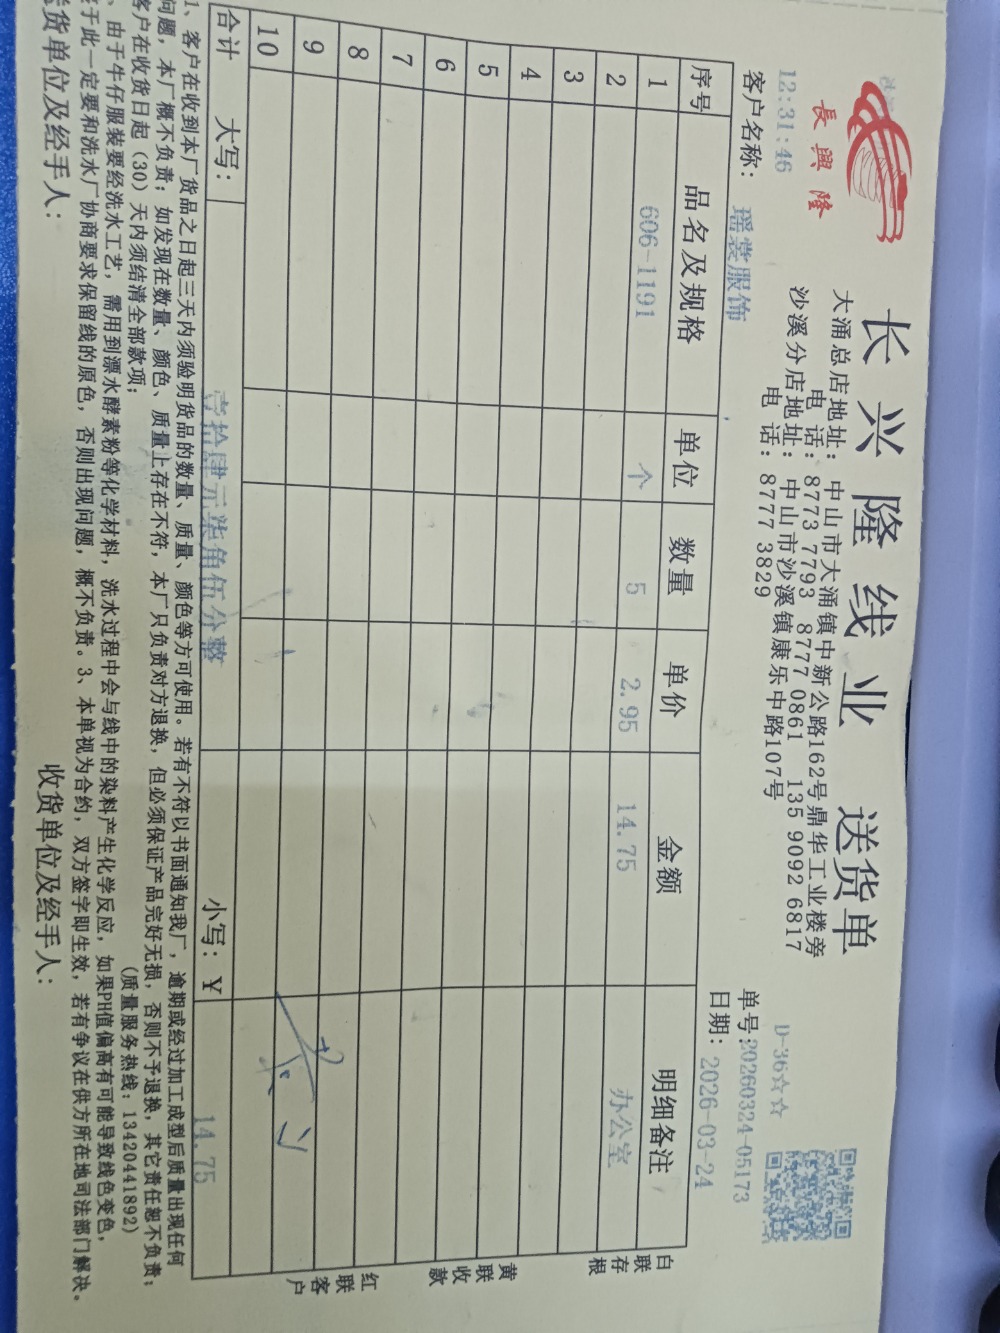 長興隆
长兴隆线业 送货单
大涌总店地址：中山市大涌镇中新公路162号鼎华工业楼旁
电 话：8773 7793 8777 0861 135 9092 6817
沙溪分店地址：中山市沙溪镇康乐中路107号
电 话：8777 3829
12:31:46
D-36☆☆
单号：20260324-05173
客户名称：瑶裳服饰
日期：2026-03-24
序号 品名及规格 单位 数量 单价 金额 明细备注
1 606-1191 个 5 2.95 14.75 办公室
2
3
4
5
6
7
8
9
10
合计 大写：壹拾肆元柒角伍分整 小写：￥ 14.75
白联存根
黄联收款
红联客户
1、客户在收到本厂货品之日起三天内须验明货品的数量、质量、颜色等方可使用。若有不符以书面通知我厂，逾期或经过加工成型后质量出现任何
问题，本厂概不负责；如发现在数量、颜色、质量上存在不符，本厂只负责对方退换，但必须保证产品完好无损，否则不予退换，其它责任恕不负责；
客户在收货日起（30）天内须结清全部款项；
（质量服务热线：13420441892）
、由于牛仔服装要经洗水工艺，需用到漂水酵素粉等化学材料，洗水过程中会与线中的染料产生化学反应，如果PH值偏高有可能导致线色变色，
于此一定要和洗水厂协商要求保留线的原色，否则出现问题，概不负责。3、本单视为合约，双方签字即生效，若有争议在供方所在地司法部门解决。
送货单位及经手人：
收货单位及经手人：